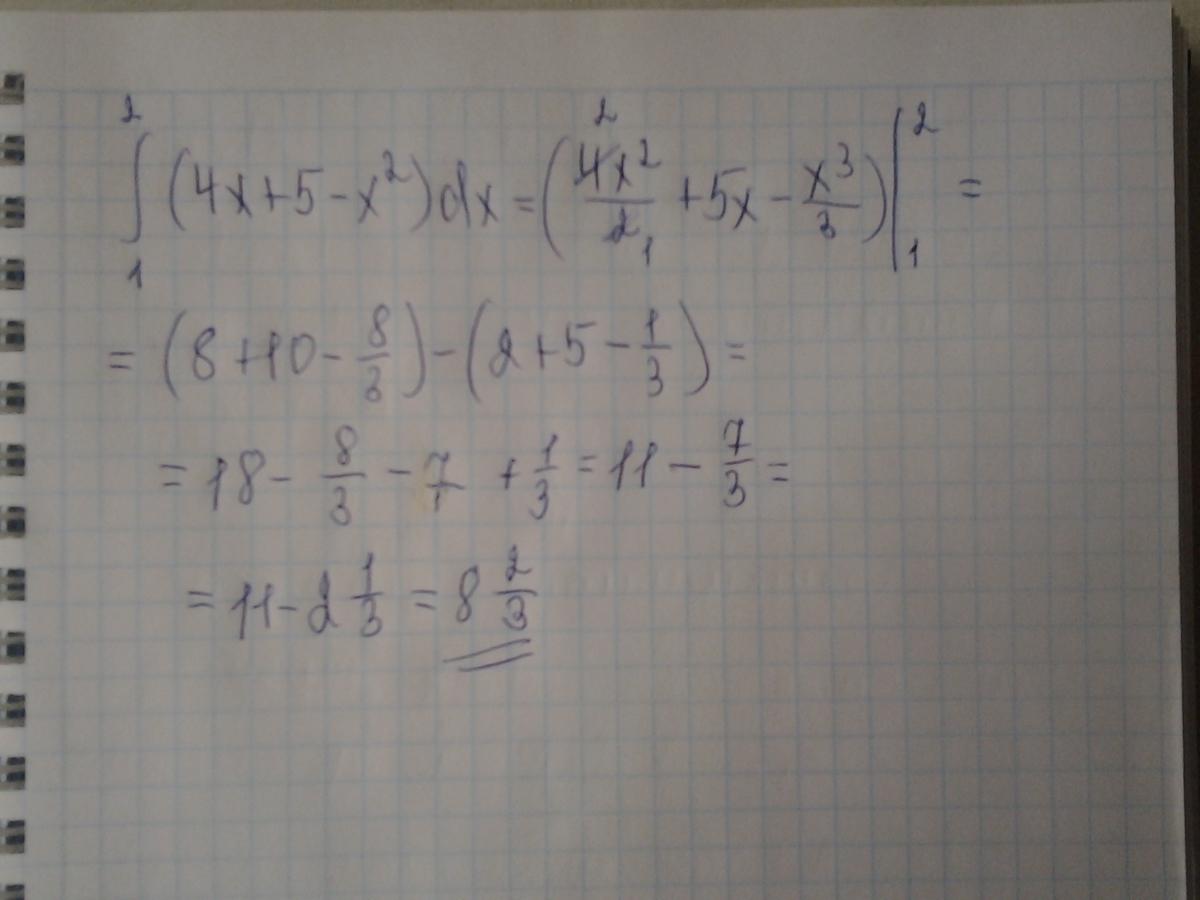 ∫₁² (4x+5-x²)dx = (4x²/2 + 5x - x³/3) |₁² =
= (8+10-8/3) - (2+5-1/3) =
= 18 - 8/3 - 7 + 1/3 = 11 - 7/3 =
= 11 - 2 1/3 = 8 2/3